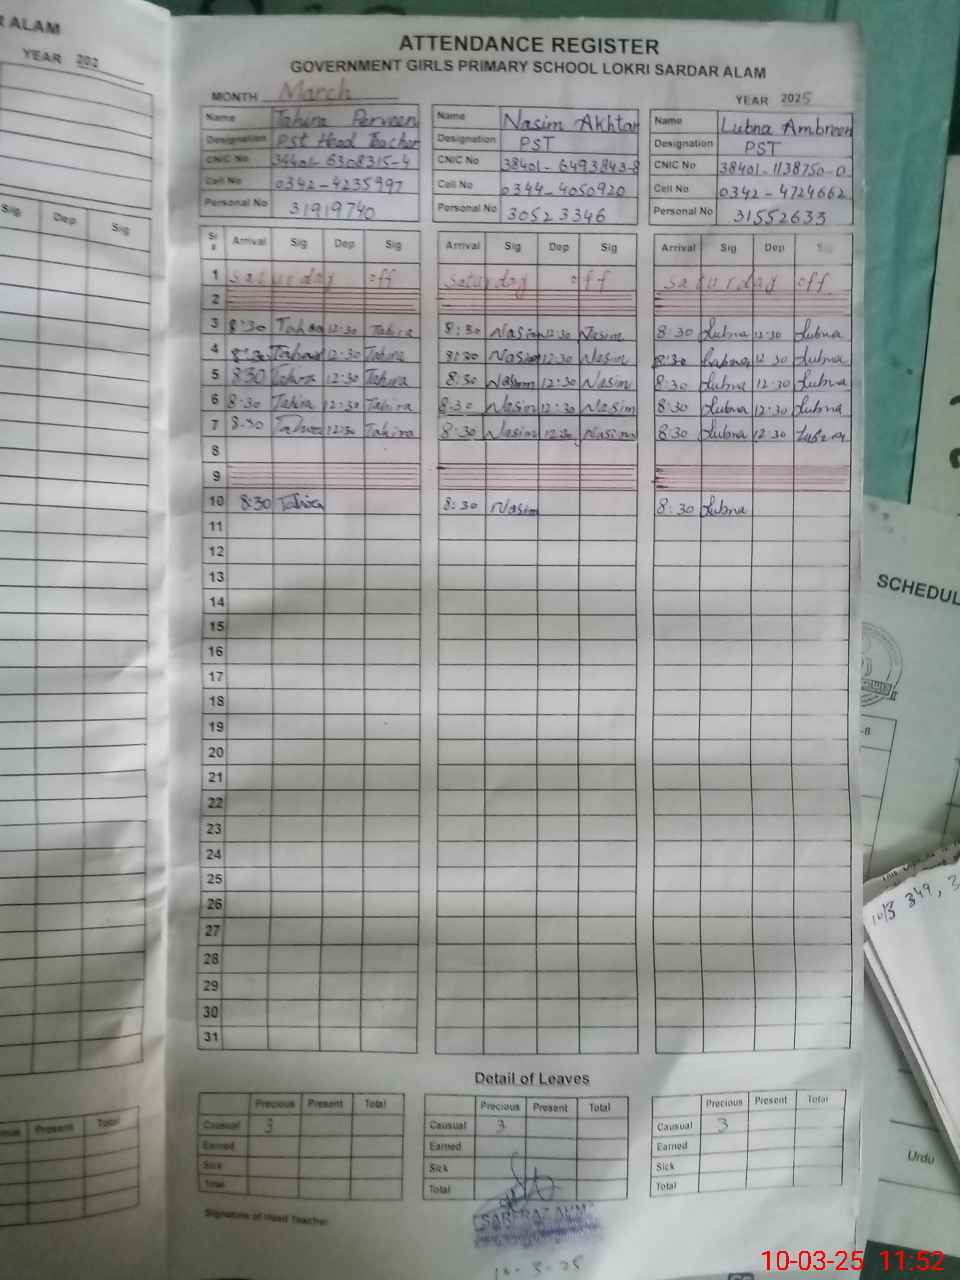 R ALAM
YEAR 202
Sig Dep Sig
Present Total
ATTENDANCE REGISTER
GOVERNMENT GIRLS PRIMARY SCHOOL LOKRI SARDAR ALAM
MONTH March YEAR 2025
Name Tahira Perveen Name Nasim Akhtar Name Lubna Ambreen
Designation PST Head Teacher Designation PST Designation PST
CNIC No 6308315-4 CNIC No 38401-6493843-8 CNIC No 38401-1138750-0
Cell No 0342-4235997 Cell No 0344-4050920 Cell No 0342-4724662
Personal No 31919740 Personal No 30523346 Personal No 31552633
Sr # Arrival Sig Dep Sig Arrival Sig Dep Sig Arrival Sig Dep Sig
1 Saturday off Saturday off Saturday off
2
3 8:30 Tahira 12:30 Tahira 8:30 Nasim 12:30 Nasim 8:30 Lubna 12:30 Lubna
4 8:30 Tahira 12:30 Tahira 8:30 Nasim 12:30 Nasim 8:30 Lubna 12 30 Lubna
5 8:30 Tahira 12:30 Tahira 8:30 Nasim 12:30 Nasim 8:30 Lubna 12:30 Lubna
6 8:30 Tahira 12:30 Tahira 8:30 Nasim 12:30 Nasim 8:30 Lubna 12:30 Lubna
7 8:30 Tahira 12:30 Tahira 8:30 Nasim 12:30 Nasim 8:30 Lubna 12:30 Lubna
8
9
10 8:30 Tahira 8:30 Nasim 8:30 Lubna
11
12
13
14
15
16
17
18
19
20
21
22
23
24
25
26
27
28
29
30
31
Detail of Leaves
Precious Present Total Precious Present Total Precious Present Total
Causual 3 Causual 3 Causual 3
Earned Earned Earned
Sick Sick Sick
Total Total Total
Signature of Head Teacher
SCHEDUL
-B
10/3 349, 3
Urdu
10-03-25 11:52